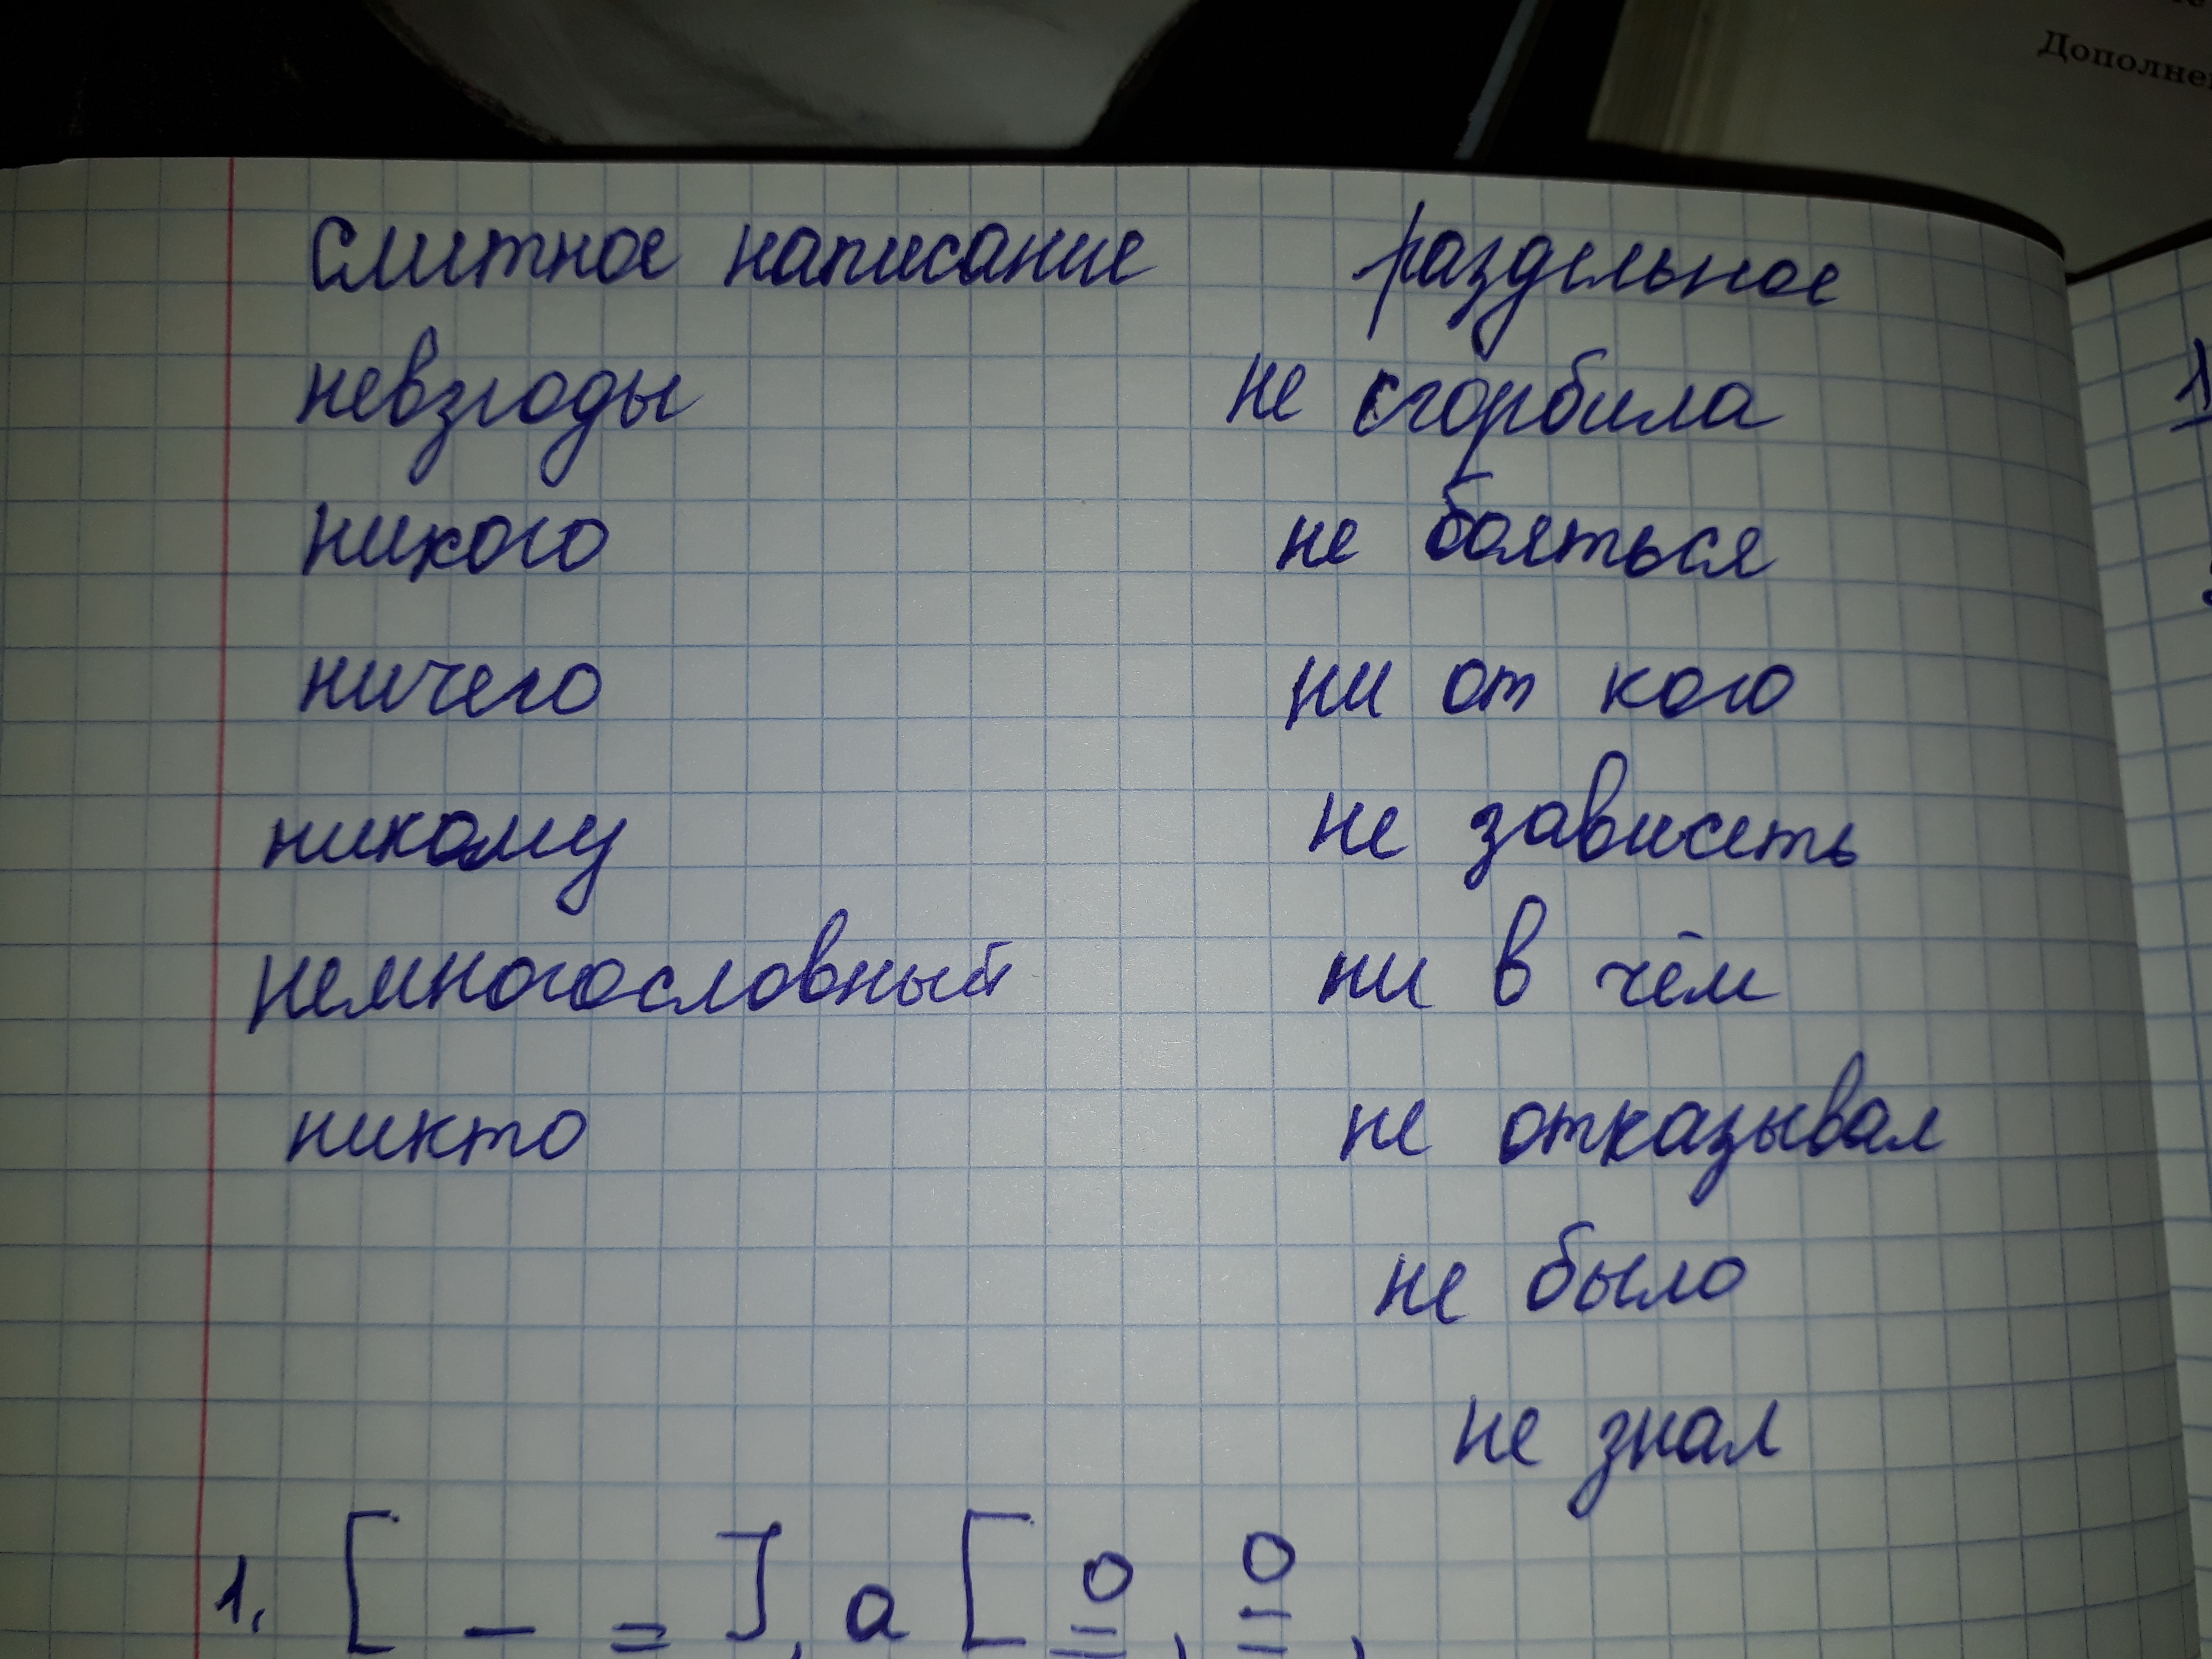 Дополне
Слитное написание раздельное
невзгоды не сгорбила
никого не бояться
ничего ни от кого
никому не зависеть
немногословный ни в чём
никто не отказывал
не было
не знал
1. [ — = ], а [ =, =,
1)